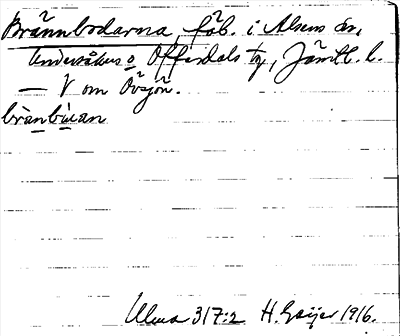 Brännbodarna, fäb. i Alsens sn,
Undersåkers o Offerdals tg, Jämtl. l.
— V om Övsjön.
brànbùan
Ulma 317:2 H. Geijer 1916.